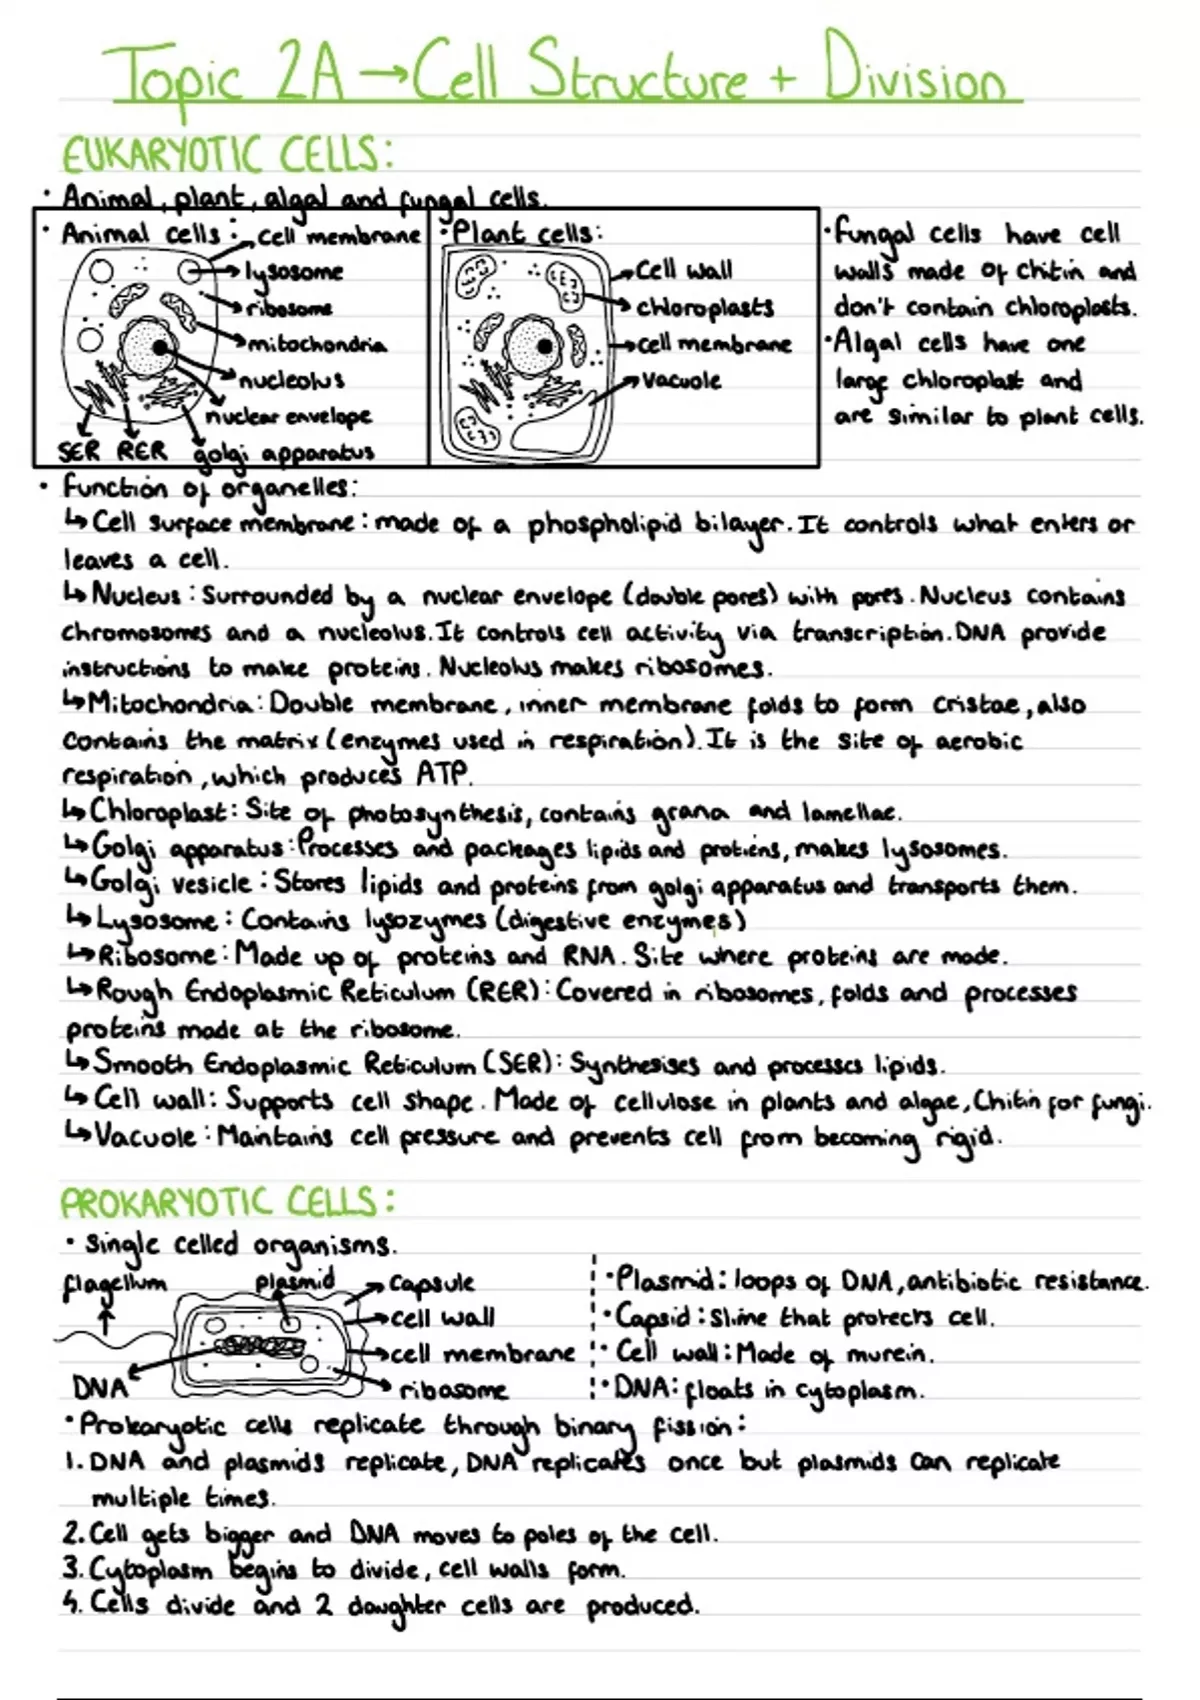 Topic 2A → Cell Structure + Division
EUKARYOTIC CELLS:
· Animal, plant, algal and fungal cells.
· Animal cells:
cell membrane
lysosome
ribosome
mitochondria
nucleolus
nuclear envelope
SER RER golgi apparatus
· Plant cells:
Cell wall
chloroplasts
cell membrane
Vacuole
· Fungal cells have cell
walls made of chitin and
don't contain chloroplasts.
· Algal cells have one
large chloroplast and
are similar to plant cells.
· Function of organelles:
↳ Cell surface membrane: made of a phospholipid bilayer. It controls what enters or
leaves a cell.
↳ Nucleus: Surrounded by a nuclear envelope (double pores) with pores. Nucleus contains
chromosomes and a nucleolus. It controls cell activity via transcription. DNA provide
instructions to make proteins. Nucleolus makes ribosomes.
↳ Mitochondria: Double membrane, inner membrane folds to form cristae, also
contains the matrix (enzymes used in respiration). It is the site of aerobic
respiration, which produces ATP.
↳ Chloroplast: Site of photosynthesis, contains grana and lamellae.
↳ Golgi apparatus: Processes and packages lipids and protiens, makes lysosomes.
↳ Golgi vesicle: Stores lipids and proteins from golgi apparatus and transports them.
↳ Lysosome: Contains lysozymes (digestive enzymes)
↳ Ribosome: Made up of proteins and RNA. Site where proteins are made.
↳ Rough Endoplasmic Reticulum (RER): Covered in ribosomes, folds and processes
proteins made at the ribosome.
↳ Smooth Endoplasmic Reticulum (SER): Synthesises and processes lipids.
↳ Cell wall: Supports cell shape. Made of cellulose in plants and algae, Chitin for fungi.
↳ Vacuole: Maintains cell pressure and prevents cell from becoming rigid.
PROKARYOTIC CELLS:
· Single celled organisms.
flagellum
plasmid
Capsule
cell wall
cell membrane
ribosome
DNA
· Plasmid: loops of DNA, antibiotic resistance.
· Capsid: Slime that protects cell.
· Cell wall: Made of murein.
· DNA: floats in cytoplasm.
· Prokaryotic cells replicate through binary fission:
1. DNA and plasmids replicate, DNA replicates once but plasmids can replicate
multiple times.
2. Cell gets bigger and DNA moves to poles of the cell.
3. Cytoplasm begins to divide, cell walls form.
4. Cells divide and 2 daughter cells are produced.